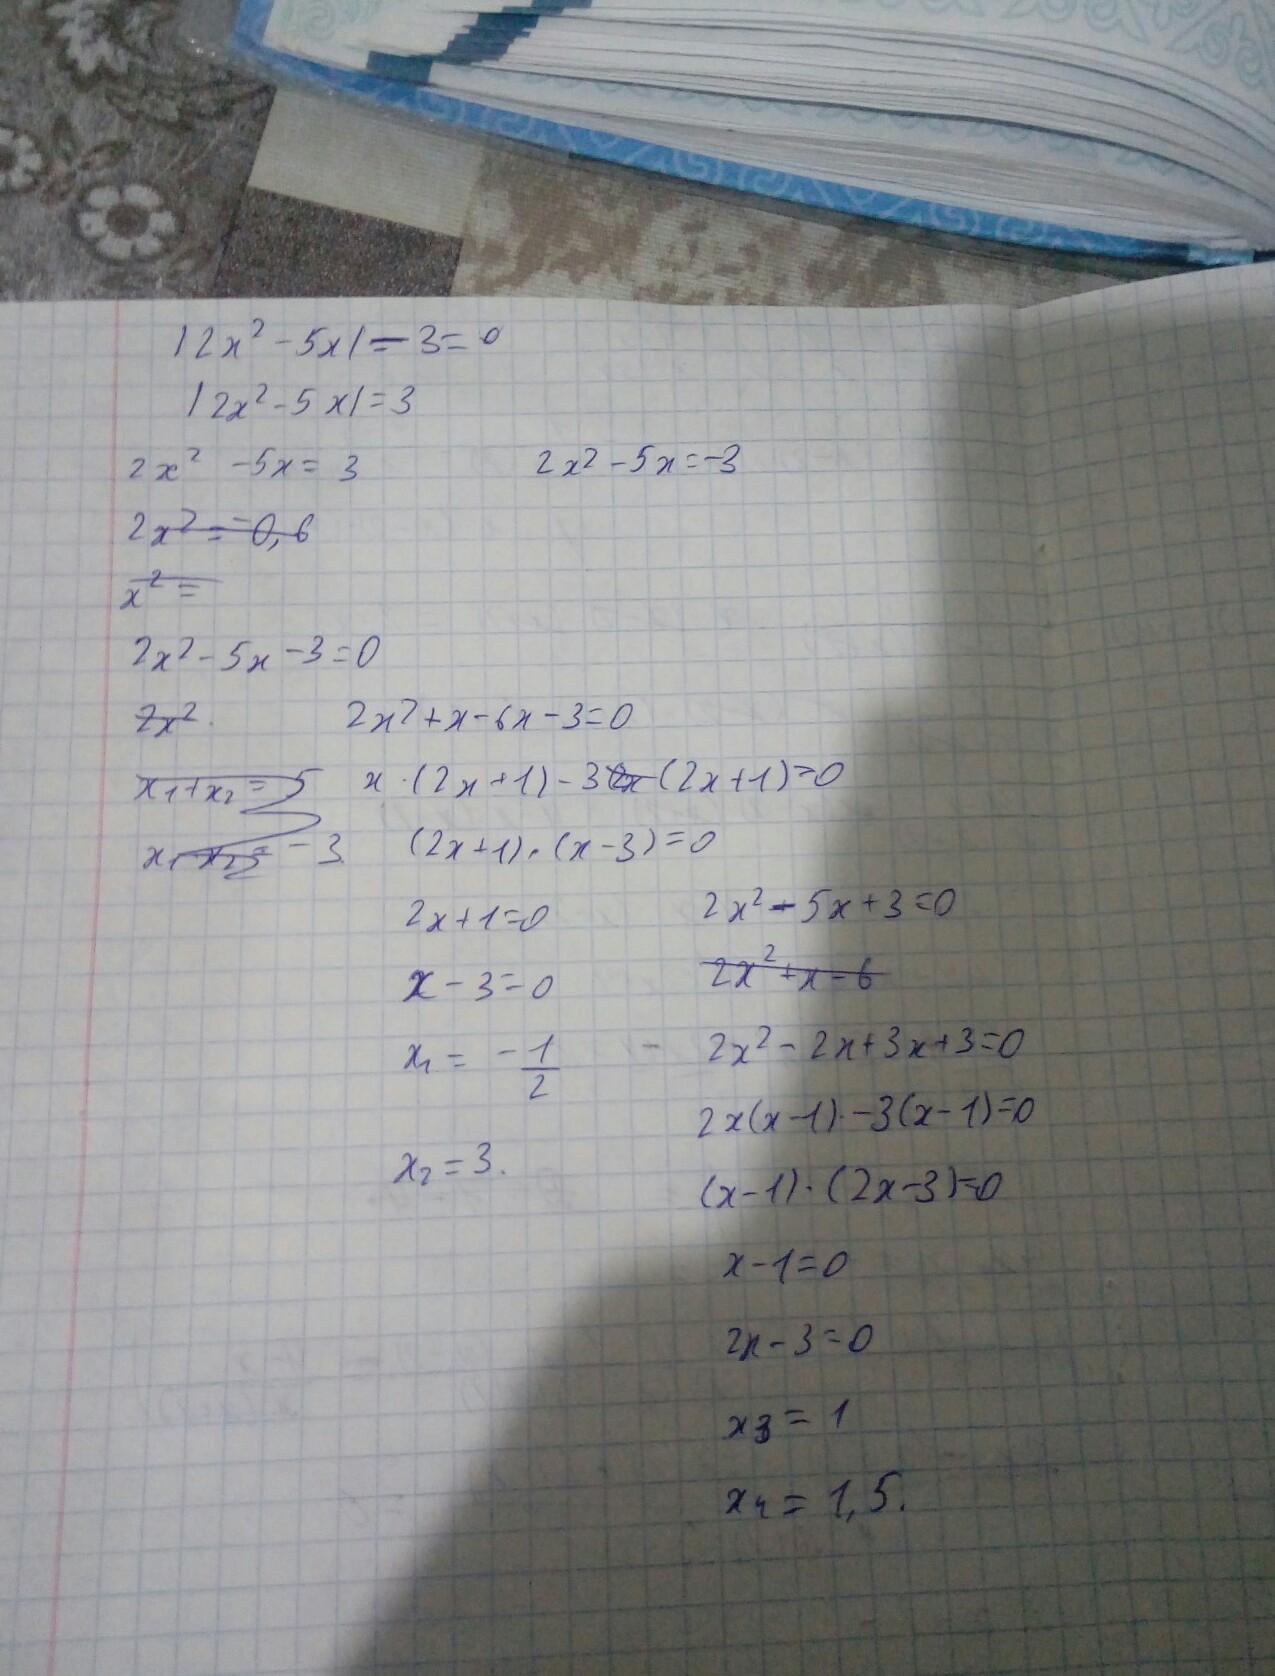 |2x² - 5x| - 3 = 0
|2x² - 5x| = 3
2x² - 5x = 3
2x² - 5x = -3
2x² = -0,6
x² =
2x² - 5x - 3 = 0
2x².
2x² + x - 6x - 3 = 0
x₁ + x₂ = 5
x · (2x + 1) - 3 (2x + 1) = 0
x₁ x₂ = -3
(2x + 1) · (x - 3) = 0
2x + 1 = 0
x - 3 = 0
x₁ = -1/2
x₂ = 3.
2x² - 5x + 3 = 0
2x² + x - 6
2x² - 2x + 3x + 3 = 0
2x(x - 1) · -3(x - 1) = 0
(x - 1) · (2x - 3) = 0
x - 1 = 0
2x - 3 = 0
x₃ = 1
x₄ = 1,5.